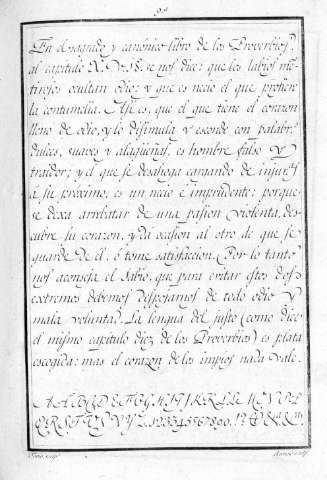 En el sagrado y canónico libro de los Proverbios,
al capitulo X. V. 18. se nos dice: que los labios men-
tirosos ocultan odio; y que es necio el que profiere
la contumelia. Asi es, que el que tiene el corazon
lleno de odio, y lo disimula y esconde con palabr.s
dulces, suaves y alagüeñas, es hombre falso y
traidor; y el que se desahoga cargando de injur.s
á su próximo, es un necio é imprudente: porque
se dexa arrebatar de una pasion violenta, des-
cubre su corazon, y da ocasion al otro de que se
guarde de él, ó tome satisfaccion. Por lo tanto
nos aconseja el Sabio, que para evitar estos dos
extremos debemos despojarnos de todo odio y
mala voluntad. La lengua del justo (como dice
el mismo capitulo diez de los Proverbios) es plata
escogida: mas el corazon de los impios nada vale.